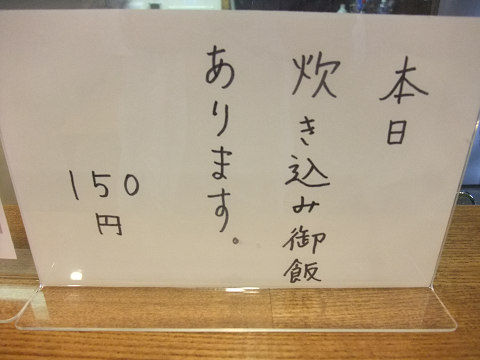 本日
炊き込み御飯
あります。
150
円